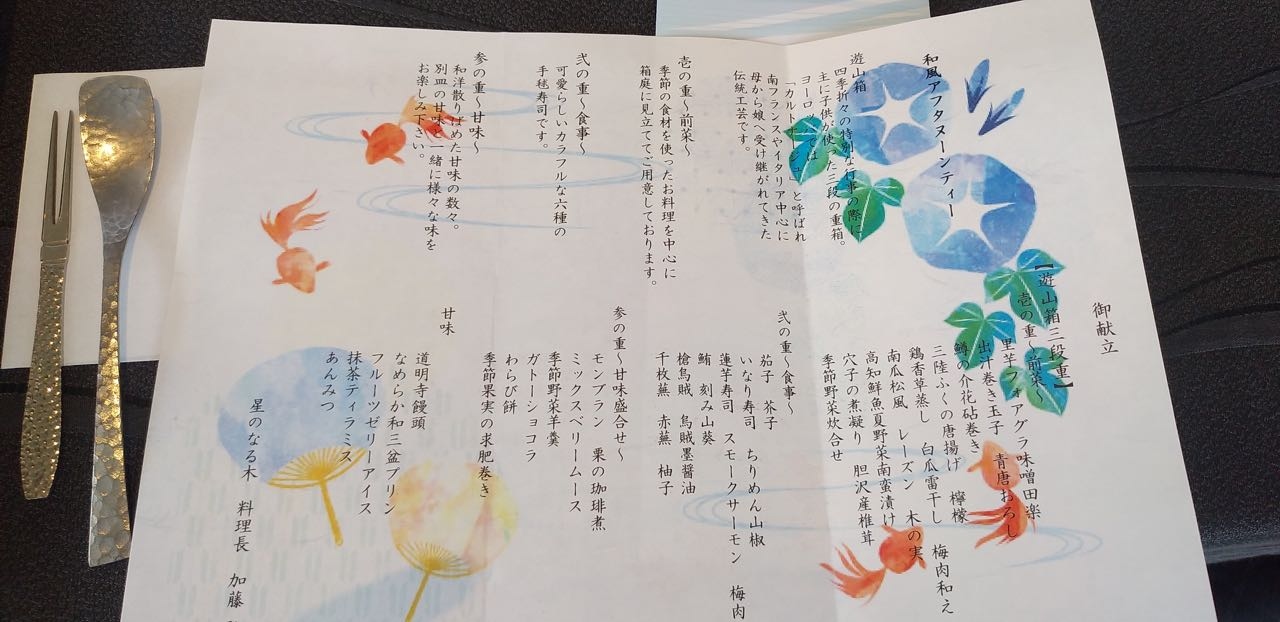 和風アフタヌーンティー
遊山箱
四季折々の特別な行事の際に
主に子供が使った三段の重箱。
ヨーロッパでは
「カルトナージュ」と呼ばれ
南フランスやイタリア中心に
母から娘へ受け継がれてきた
伝統工芸です。
壱の重～前菜～
季節の食材を使ったお料理を中心に
箱庭に見立ててご用意しております。
弐の重～食事～
可愛らしいカラフルな六種の
手毬寿司です。
参の重～甘味～
和洋散りばめた甘味の数々。
別皿の甘味と一緒に様々な味を
お楽しみ下さい。
御献立
【遊山箱三段重】
壱の重～前菜～
里芋フォアグラ味噌田楽
出汁巻き玉子　青唐おろし
鱒の介花砧巻き
三陸ふくの唐揚げ　檸檬
鶏香草蒸し　白瓜雷干し　梅肉和え
南瓜松風　レーズン　木の実
高知鮮魚夏野菜南蛮漬け
穴子の煮凝り　胆沢産椎茸
季節野菜炊合せ
弐の重～食事～
茄子　芥子
いなり寿司　ちりめん山椒
蓮芋寿司　スモークサーモン　梅肉
鮪　刻み山葵
槍烏賊　烏賊墨醤油
千枚蕪　赤蕪　柚子
参の重～甘味盛合せ～
モンブラン　栗の珈琲煮
ミックスベリームース
季節野菜羊羹
ガトーショコラ
わらび餅
季節果実の求肥巻き
甘味
道明寺饅頭
なめらか和三盆プリン
フルーツゼリーアイス
抹茶ティラミス
あんみつ
星のなる木　料理長　加藤